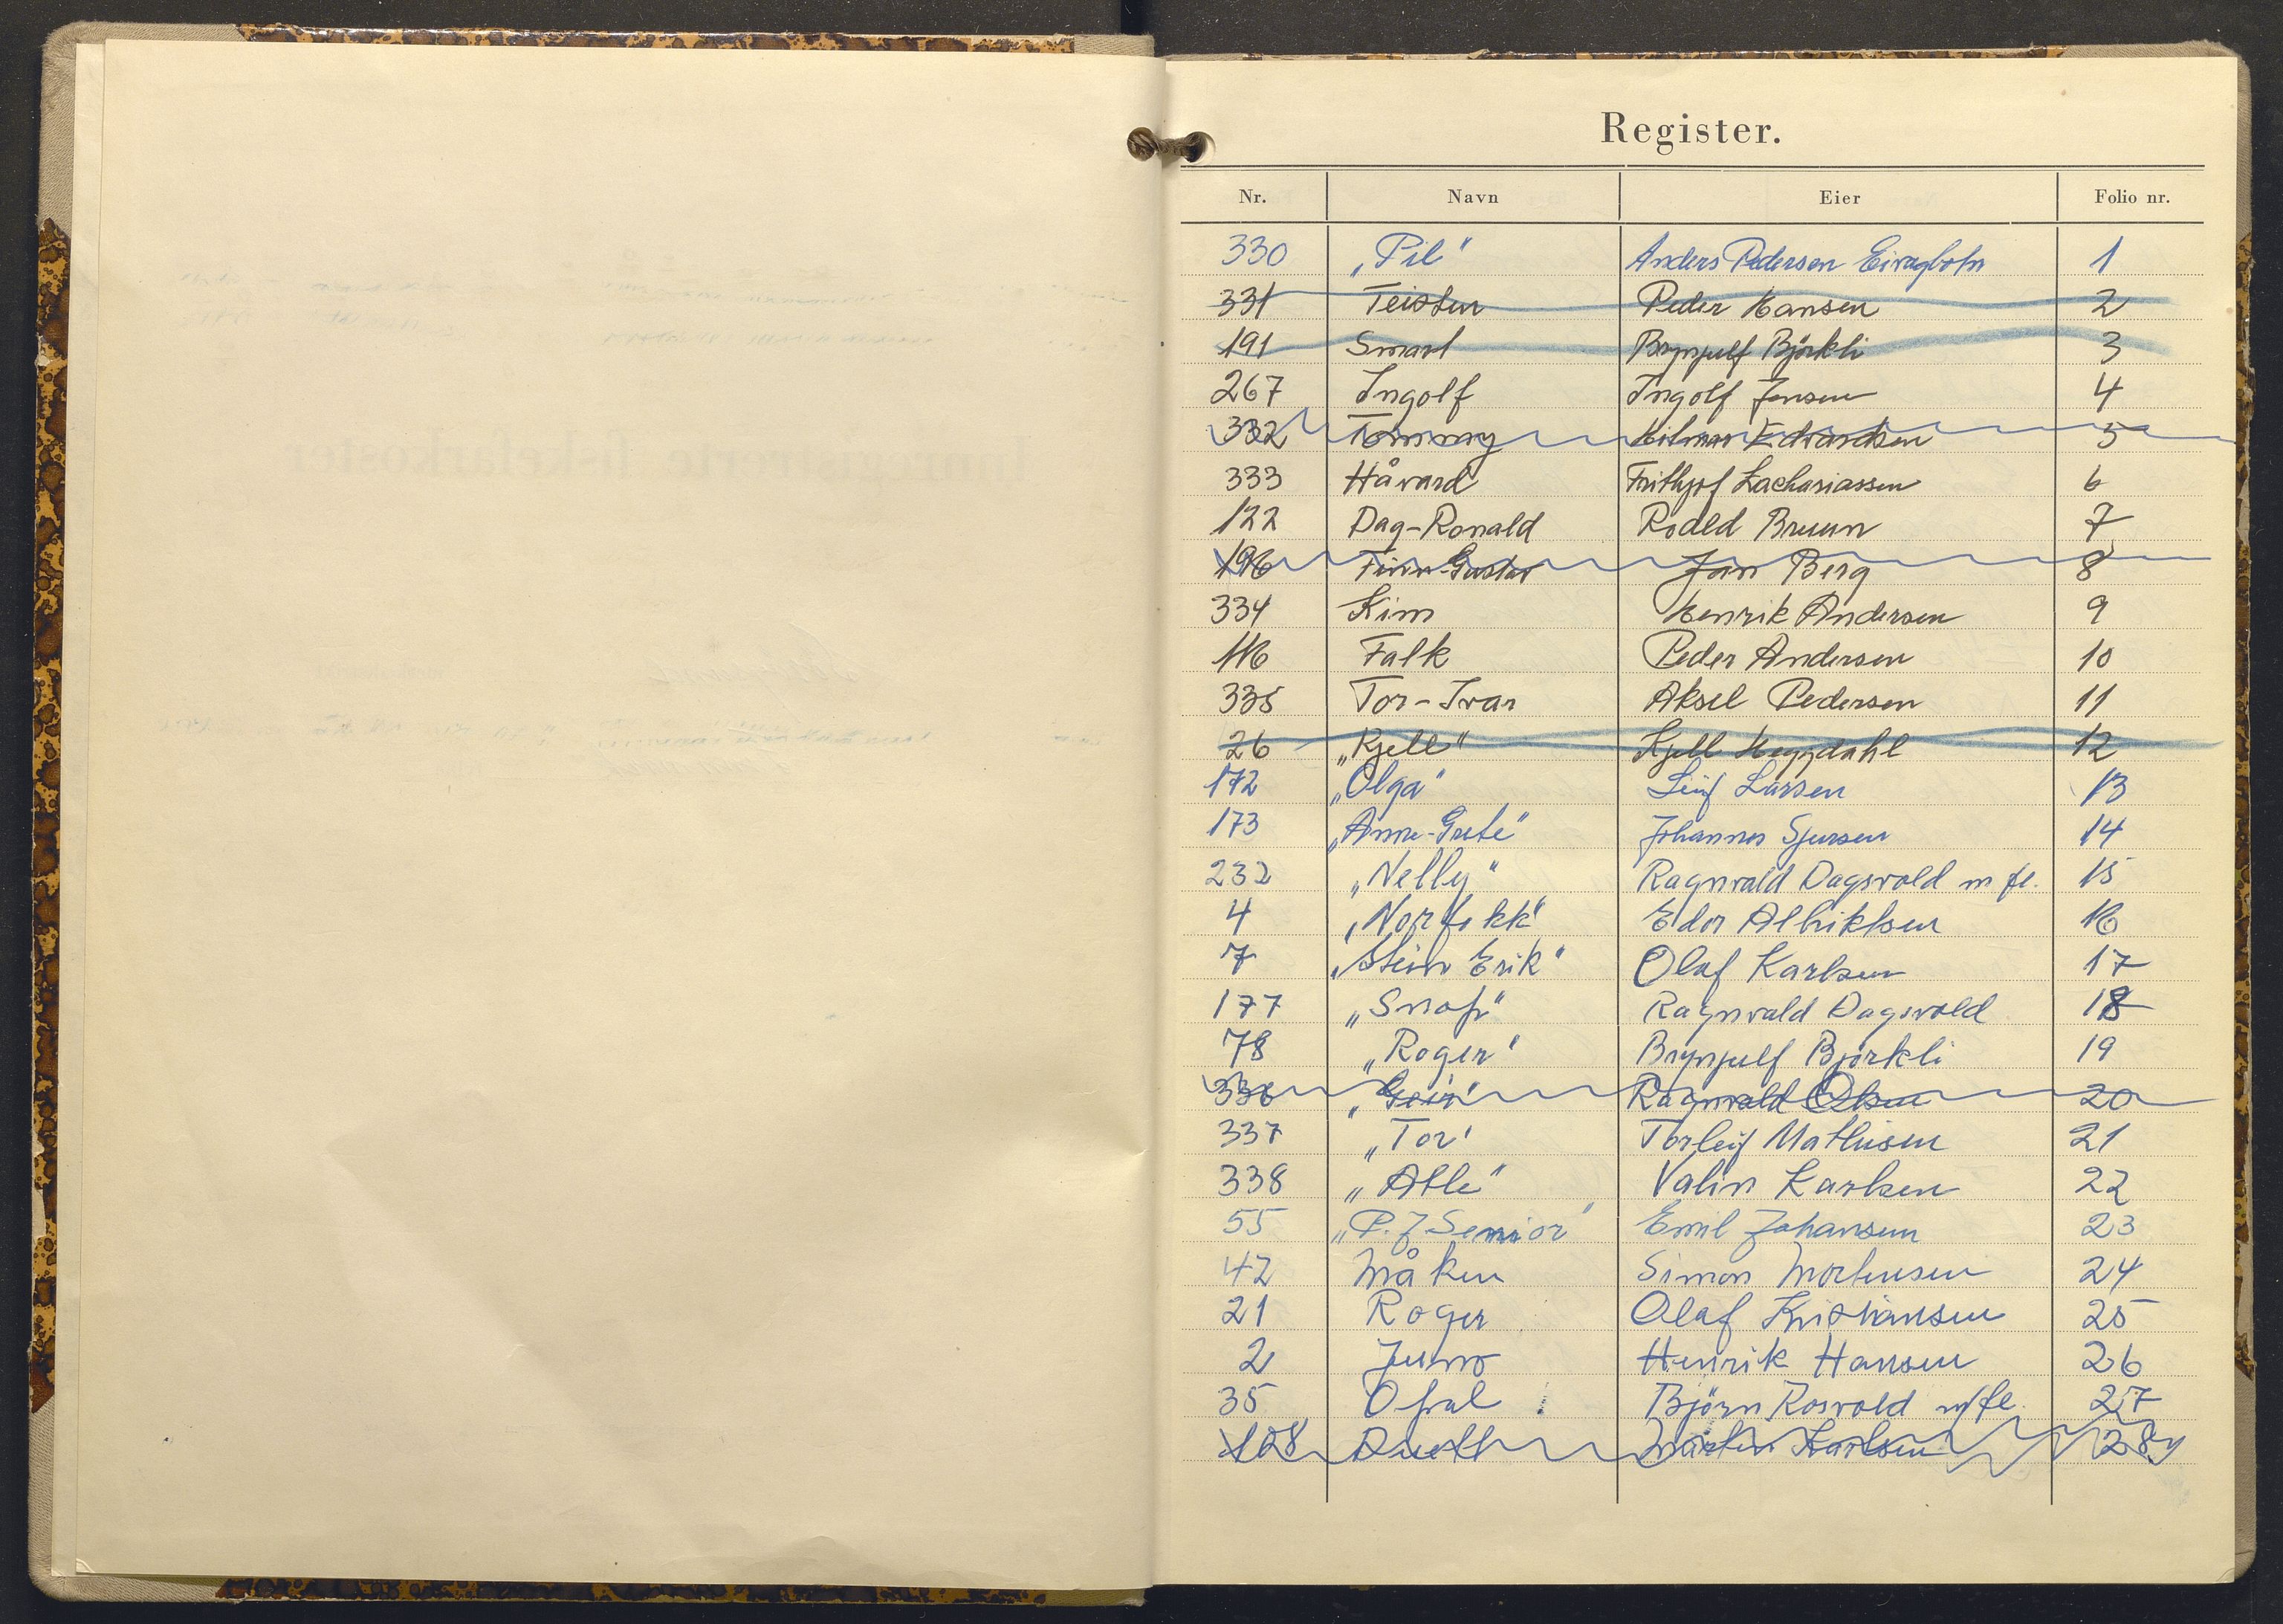 Register.
Nr. Navn Eier Folio nr.
330 „Pil" Anders Pedersen 1
331 Teisten Peder Hansen 2
191 Smart Brynjulf Björkli 3
267 Ingolf Ingolf Jensen 4
332 Tommy Hilmar Edvardsen 5
333 Håvard Frithjof Zachariassen 6
122 Dag-Ronald Rodld Bruun 7
196 Finn-Gustav Jan Berg 8
334 Kim Henrik Andersen 9
116 Falk Peder Andersen 10
335 Tor-Ivar Aksel Pedersen 11
26 „Kjell" Kjell Heggdahl 12
172 „Olga" Leif Larsen 13
173 „Anne-Grete" Johannes Sjursen 14
232 „Nelly" Ragnvald Dagsvold m fl. 15
4 Edor Alhriktsen 16
7 „Stein Erik" Olaf Karlsen 17
177 „Snap" Ragnvald Dagsvold 18
78 „Roger" Brynjulf Bjørkli 19
336 „Geir" Ragnvald Olsen 20
337 „Tor" Torleif Mathisen 21
338 „Atle" Valin Karlsen 22
55 „P. J Senior" Emil Johansen 23
42 Måken Simon Mortensen 24
21 Roger Olaf Kristiansen 25
2 Juno Henrik Hansen 26
35 Opal Björn Rosvold m/fl. 27
128 Duett Martin Karlsen 28